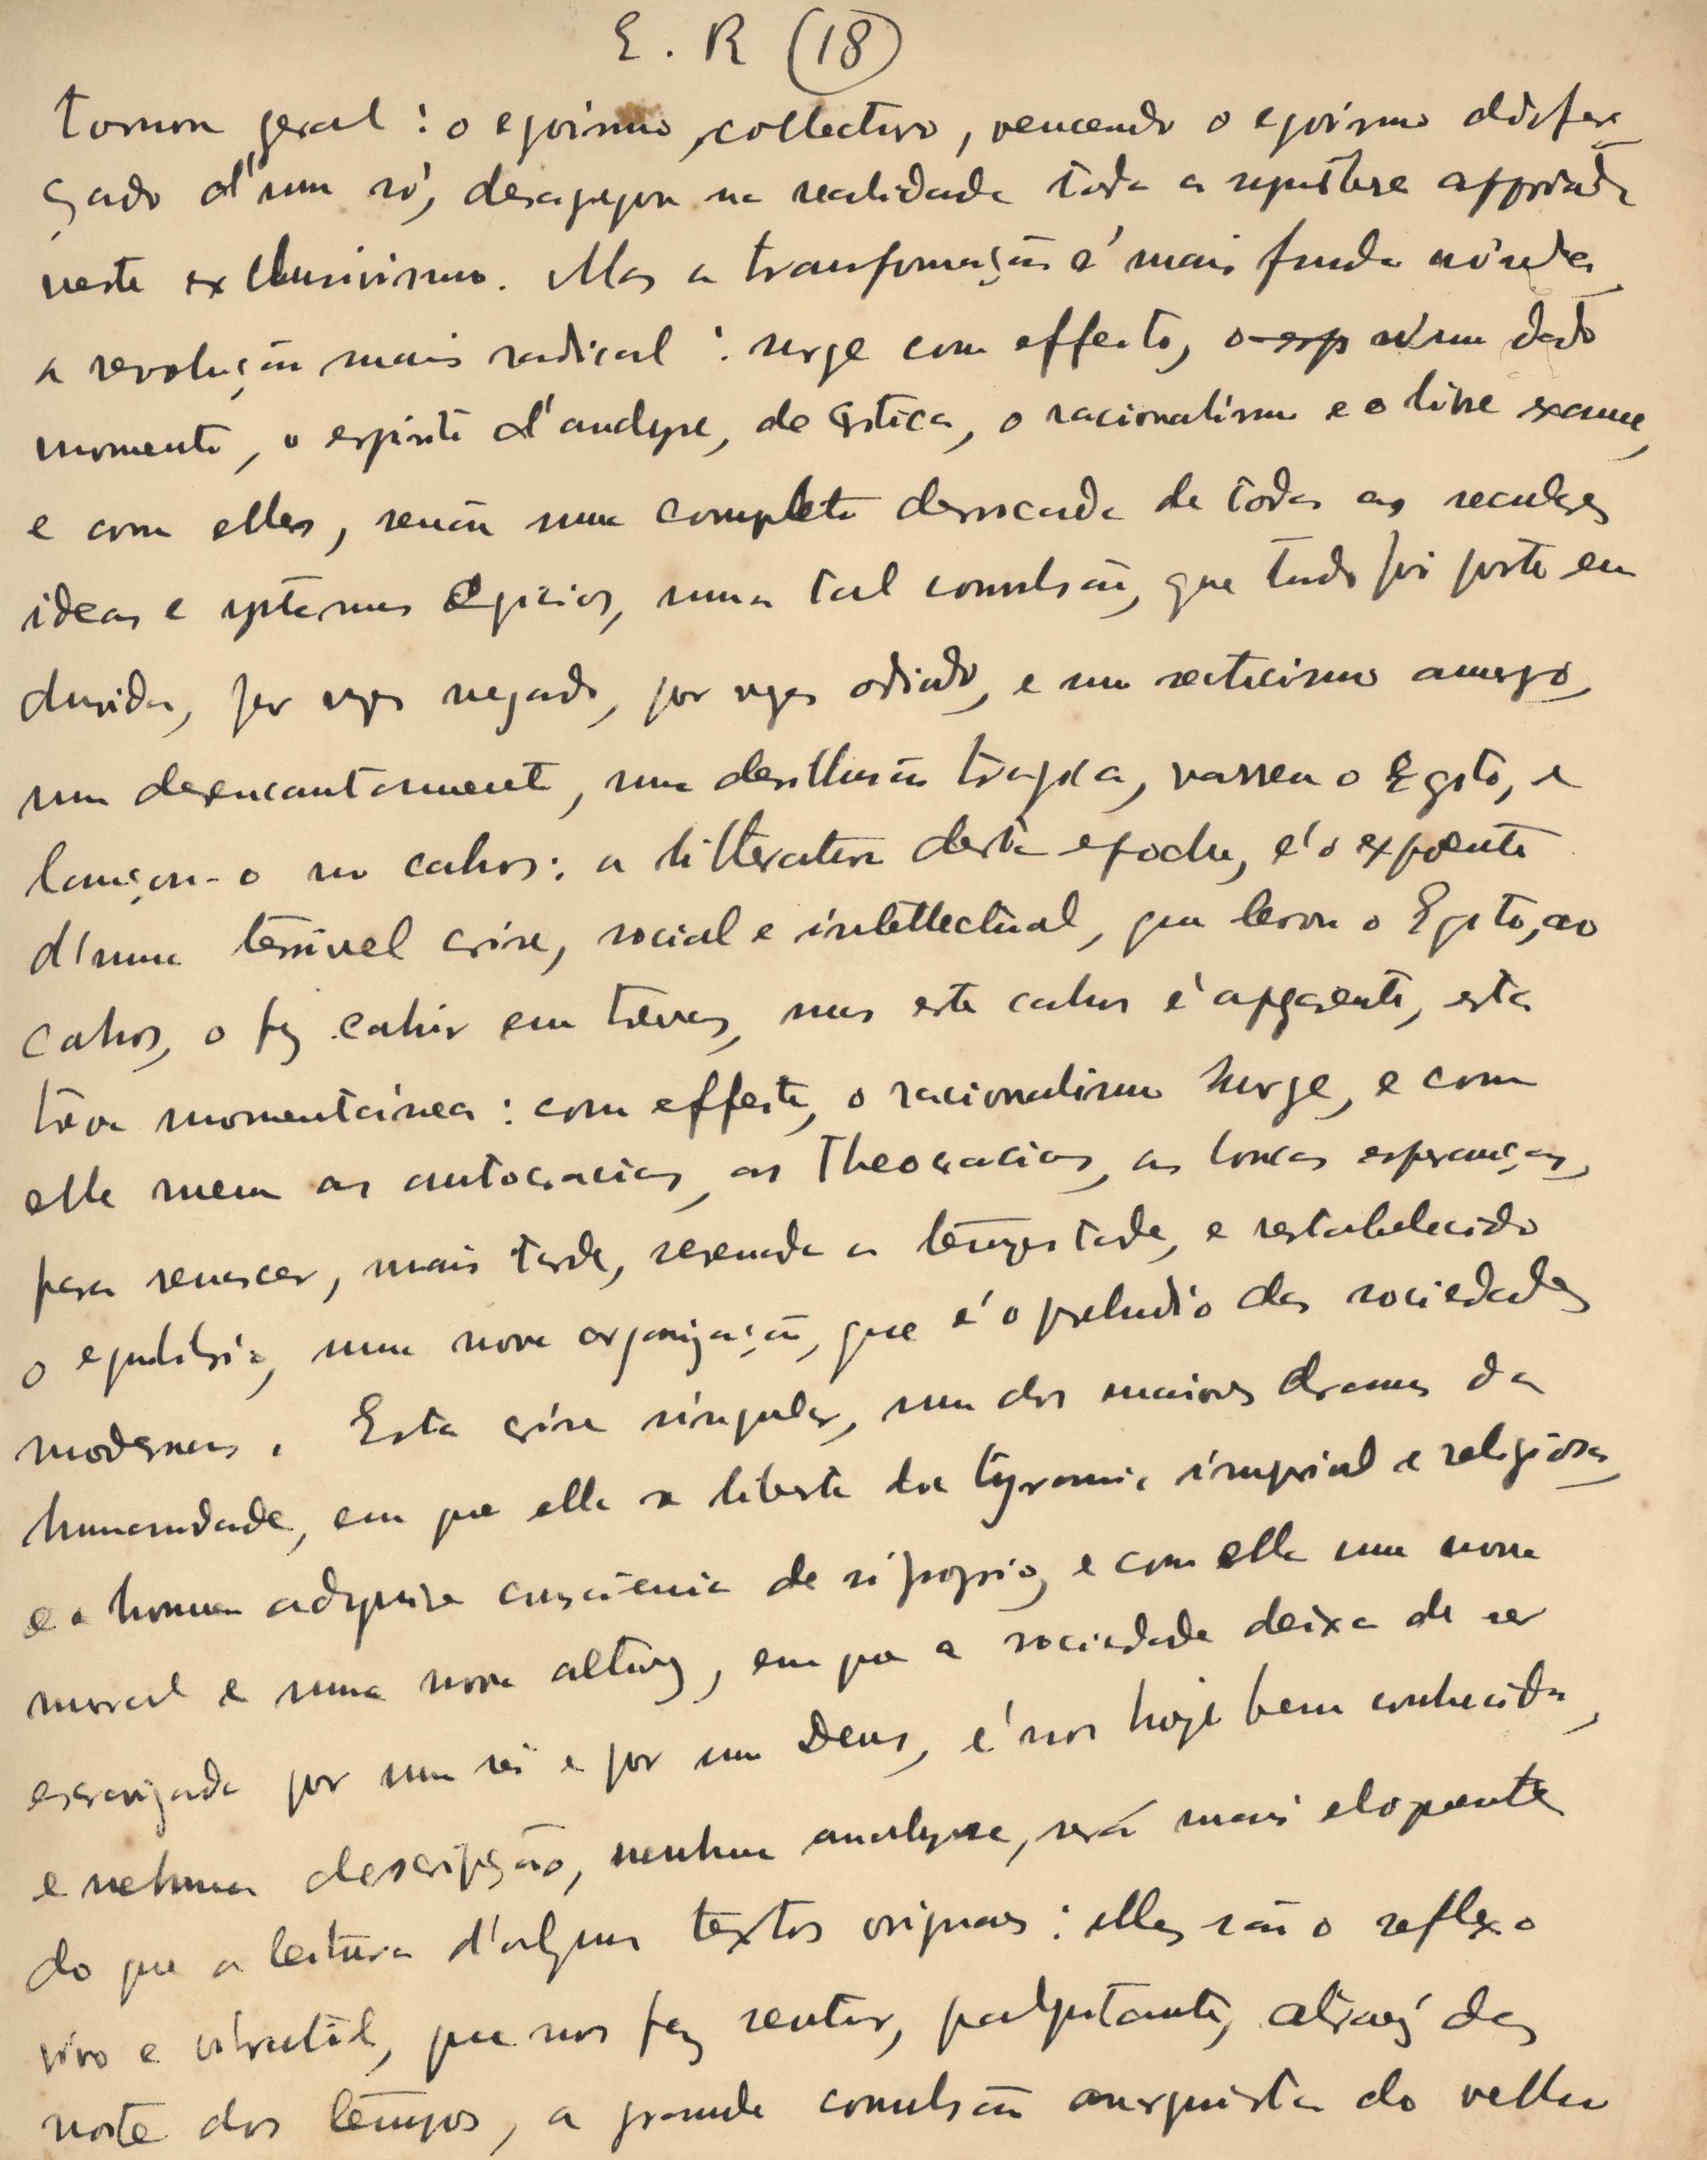 E. R (18)
tornou geral : o egoismo collectivo, vencendo o egoismo disfar
çado d'um só, desagregou na realidade toda a
neste exclusivismo. Mas a transformação é mais funda
a revolução mais radical : surge com effeito, o esp n'um dado
momento, o espirito d'analyse, de critica, o racionalismo e o livre exame,
e com elles, senão uma completa derrocada de todas as seculares
ideas e systemas egipcios, uma tal convulsão, que tudo foi posto em
duvida, por vezes negado, por vezes odiado, e um scepticismo amargo,
um desencantamento, uma desillusão tragica, varreu o Egito, e
lançou-o no cahos: a litteratura desta epocha, é o expoente
d'uma terrivel crise, social e intellectual, que levou o Egito, ao
cahos, o fez cahir em trevas, mas este cahos é apparente, esta
treva momentánea : com effeito, o racionalismo surge, e com
elle morrem as autocracias, as theocracias, as loucas esperanças,
para renascer, mais tarde, serenada a tempestade, e restabelecido
o equilibrio, uma nova organização, que é o preludio das sociedades
modernas. Esta crise singular, um dos maiores dramas da
humanidade, em que ella se liberta da tyrannia imperial e religiosa,
e o homem adquire consciencia de si proprio, e com ella uma nova
moral e uma nova altivez, em que a sociedade deixa de ser
escravizada por um rei e por um Deus, é nos hoje bem conhecida,
e nehuma descripção, nenhuma analyse, será mais eloquente
do que a leitura d'alguns textos originaes : elles são o reflexo
vivo e vibratil, que nos faz sentir, palpitante, atravez da
noite dos tempos, a grande convulsão anarquista do velho